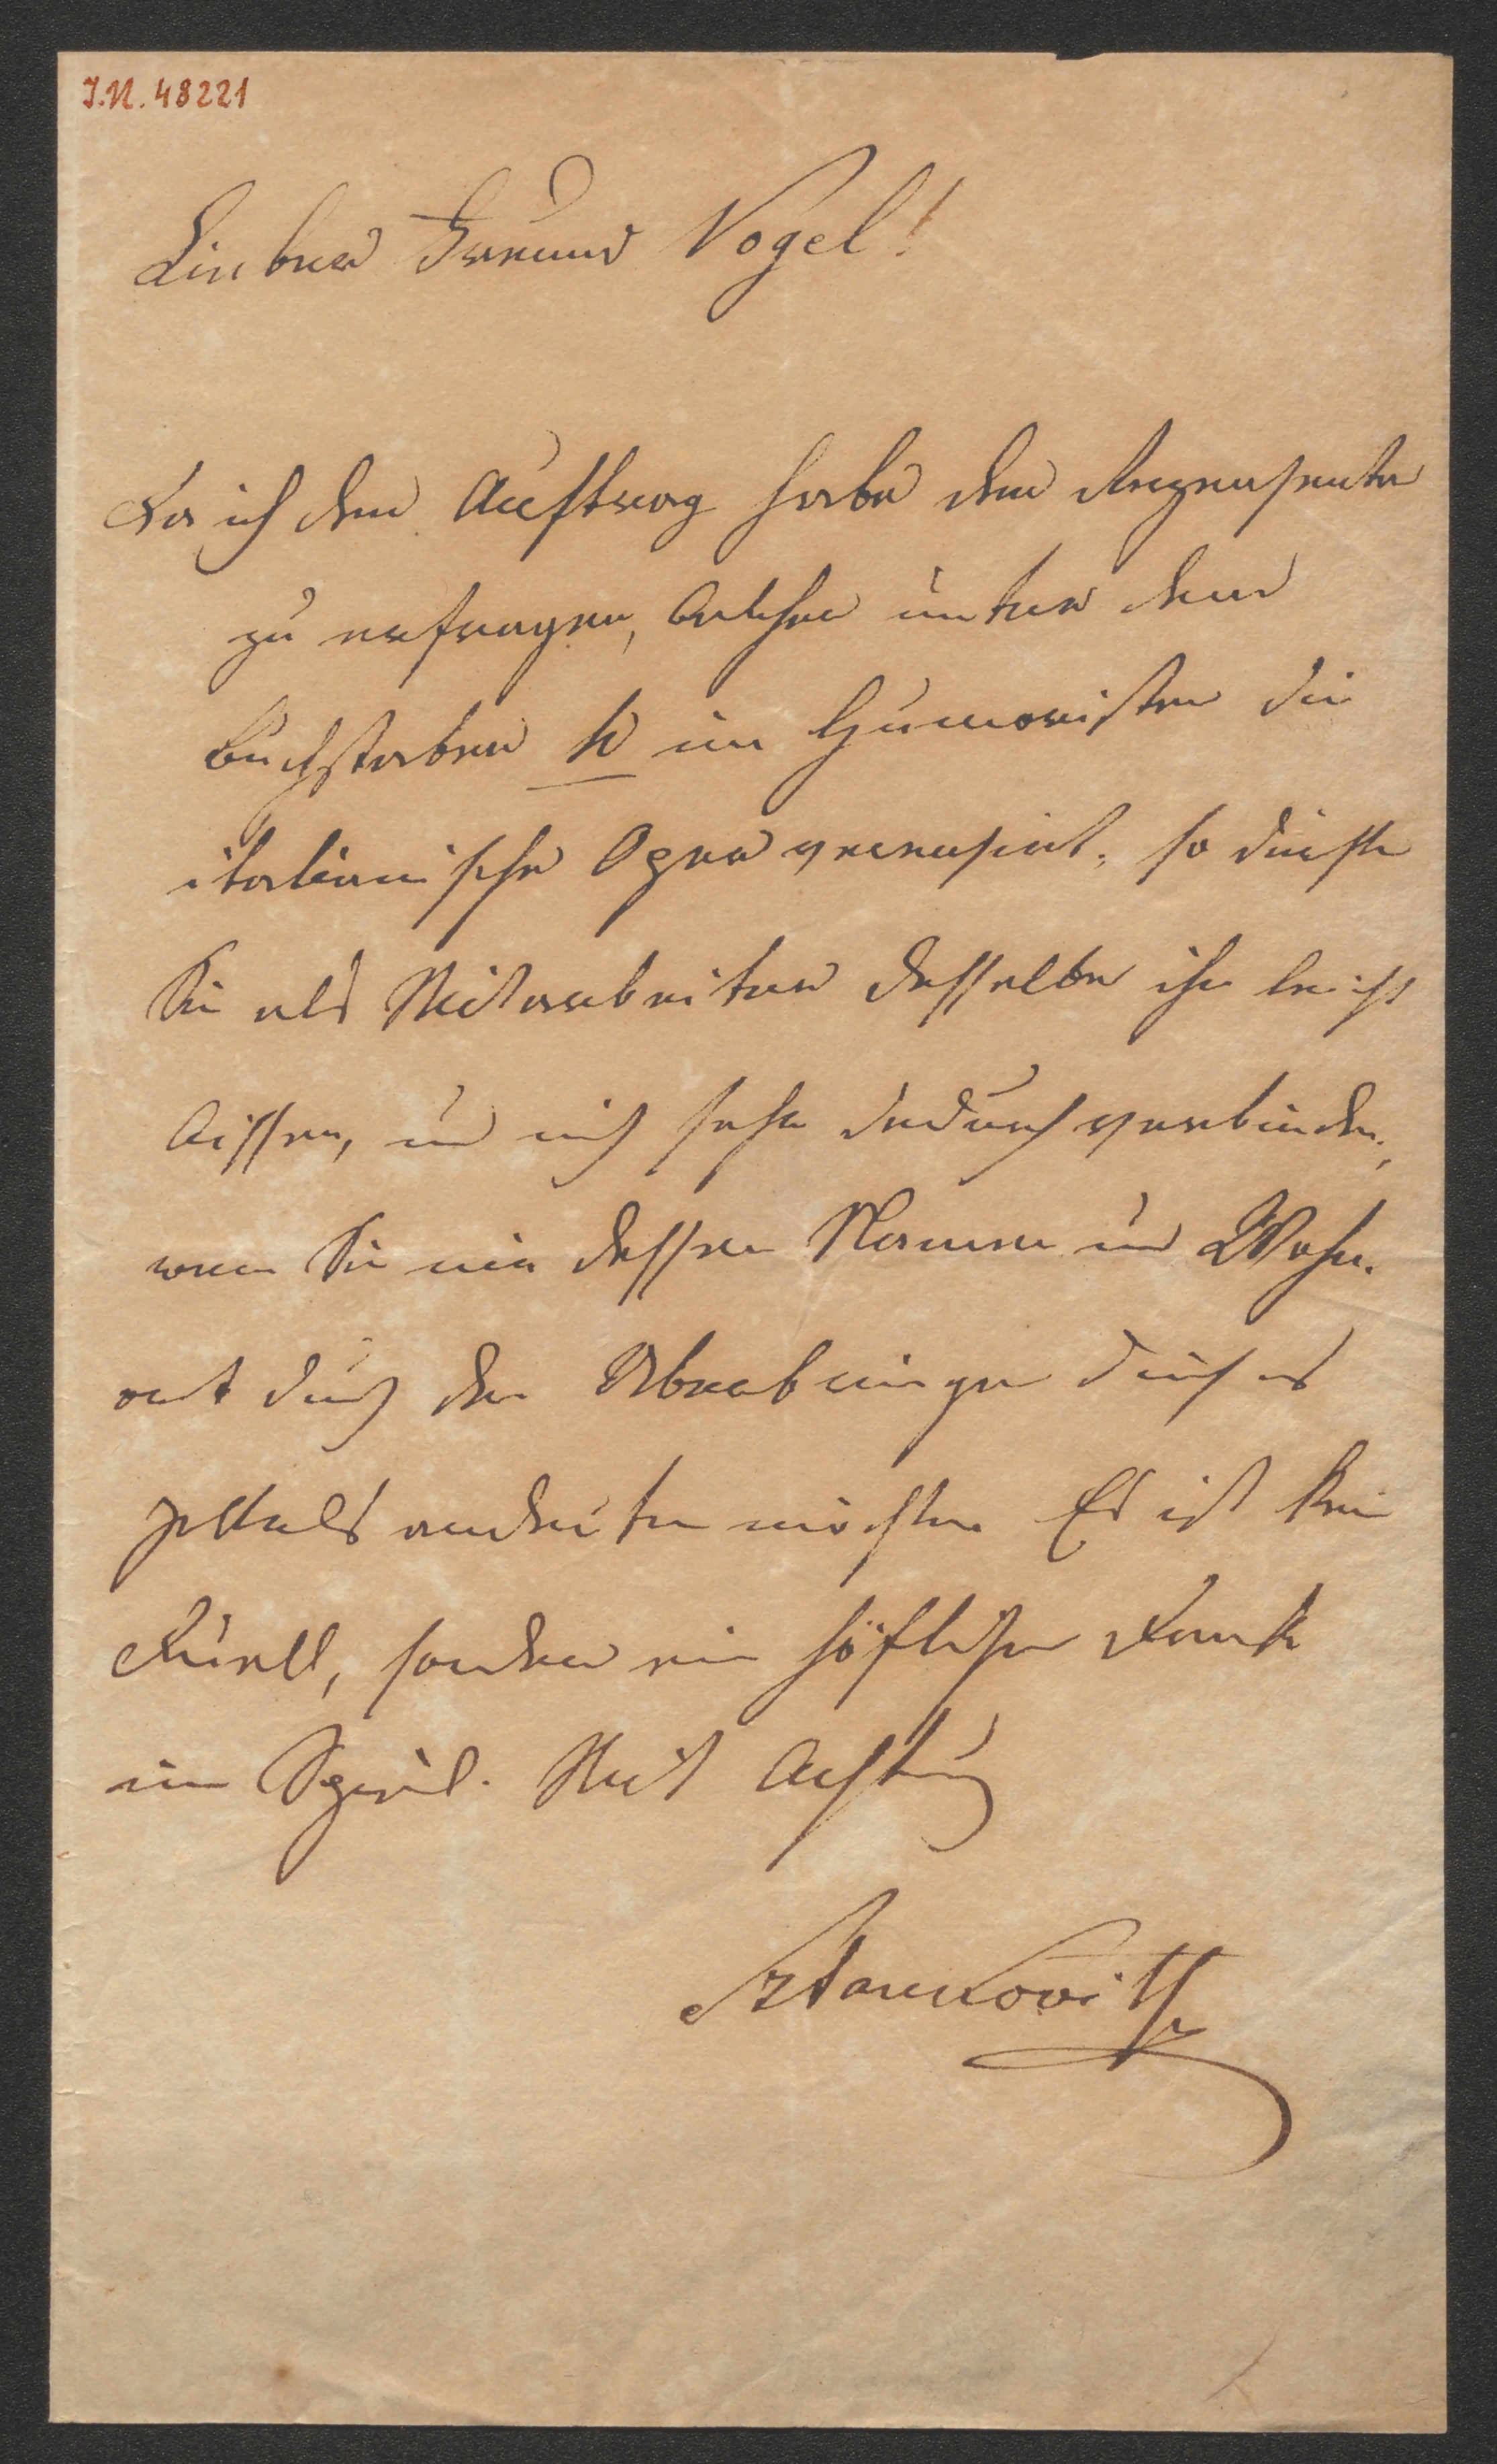 I.N. 48221
Lieber Freund Vogel!
Da ich den Auftrag habe den Rezensenten
zu erfragen, welcher unter dem
Buchstaben im Humoristen die
italienische Oper recensirt, so dürften
Sie als Mitarbeiter desselben ihn leicht
wissen, und mich sehr dadurch verbinden,
wenn Sie mir dessen Namen und Wohn-
ort durch den Überbringer dieses
Zettels andeuten möchten. Es ist kein
Duell, sondern ein höflicher Dank
im Spiel. Mit Achtung
Sztankovits